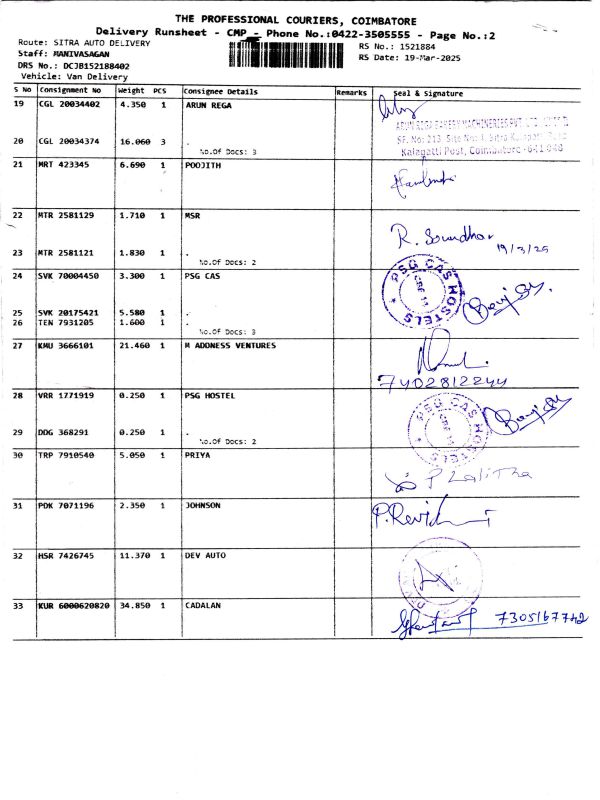 THE PROFESSIONAL COURIERS, COIMBATORE
Delivery Runsheet - CMP - Phone No.:0422-3505555 - Page No.:2
Route: SITRA AUTO DELIVERY
Staff: MANIVASAGAN
DRS No.: DCJB152188402
Vehicle: Van Delivery
RS No.: 1521884
RS Date: 19-Mar-2025
S No Consignment No Weight PCS Consignee Details Remarks Seal & Signature
19 CGL 20034402 4.350 1 ARUN REGA
20 CGL 20034374 16.060 3 .
No.Of Docs: 3
Kalapatti Post, Coimbatore - 641 048
21 MRT 423345 6.690 1 POOJITH
22 MTR 2581129 1.710 1 MSR
R. Soundhar 19/3/25
23 MTR 2581121 1.830 1 .
No.Of Docs: 2
24 SVK 70004450 3.300 1 PSG CAS
PSG CAS HOSTELS
25 SVK 20175421 5.580 1 .
26 TEN 7931205 1.600 1 .
No.Of Docs: 3
27 KMU 3666101 21.460 1 M ADDNESS VENTURES
7402812244
28 VRR 1771919 0.250 1 PSG HOSTEL
PSG CAS HOSTELS
29 DDG 368291 0.250 1 .
No.Of Docs: 2
30 TRP 7910540 5.050 1 PRIYA
P Lalitha
31 PDK 7071196 2.350 1 JOHNSON
32 HSR 7426745 11.370 1 DEV AUTO
33 KUR 6000620820 34.850 1 CADALAN
7305167742